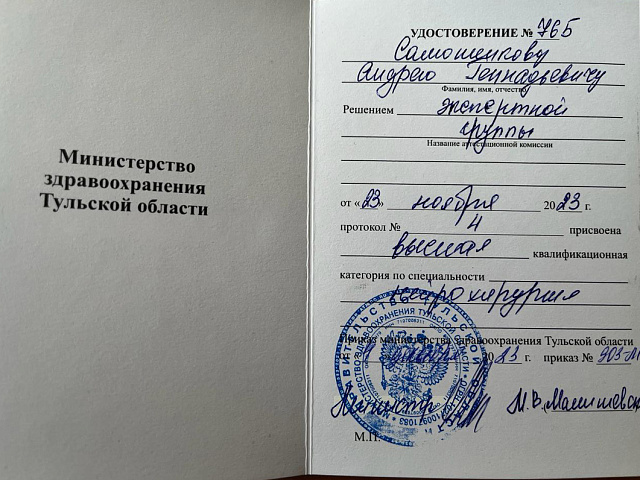 Министерство
здравоохранения
Тульской области
УДОСТОВЕРЕНИЕ № 765
Самошникову
Андрею Геннадьевичу
Фамилия, имя, отчество
Решением экспертной
группы
Название аттестационной комиссии
от «23» ноября 2023 г.
протокол № 4 присвоена
высшая квалификационная
категория по специальности
нейрохирургия
Приказ министерства здравоохранения Тульской области
2023 г. приказ №
Министр М.В. Малишевск
М.П.